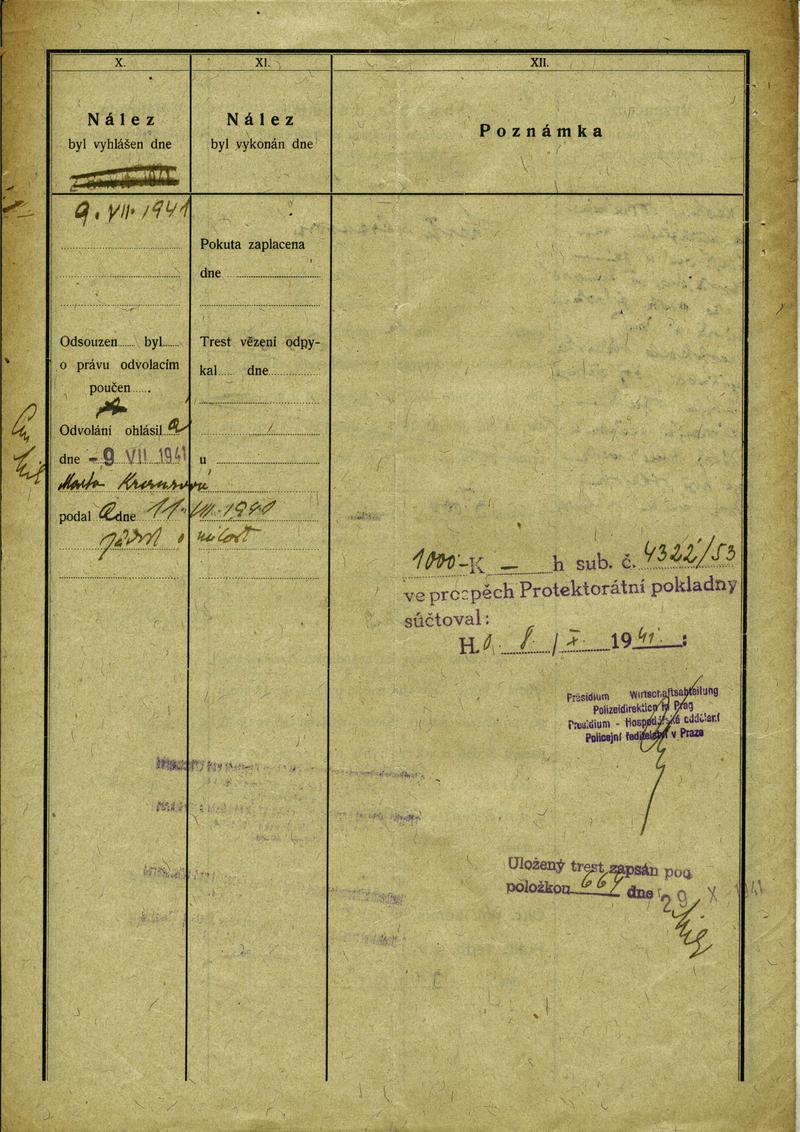 X.
Nález
byl vyhlášen dne
9. VII. 1941
Odsouzen...... byl......
o právu odvolacím
poučen......
Odvolání ohlásil a
dne - 9 VII 1941
podal a dne 11. VII. 1941
o milost
XI.
Nález
byl vykonán dne
Pokuta zaplacena
dne
Trest vězení odpy-
kal...... dne
u
XII.
Poznámka
1000-K — h sub. č. 4322/53
ve prospěch Protektorátní pokladny
súčtoval:
H. 8 / X. 1941 :
Präsidium Wirtschaftsabteilung
Polizeidirektion in Prag
Presidium - Hospodářské oddělení
Policejní ředitelství v Praze
Uložený trest zapsán pod
položkou 667 dne 29 X 1941